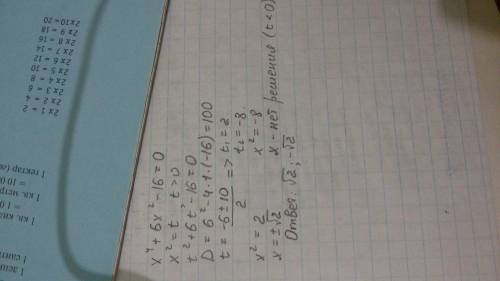 x⁴+6x²-16=0
x²=t   t>0
t²+6t-16=0
D=6²-4·1·(-16)=100
t=(-6±10)/2 => t₁=2
t₂=-8
x²=2   x²=-8
x=±√2   x-нет решения (t<0)
Ответ: √2; -√2
2x1=2
2x2=4
2x3=6
2x4=8
2x5=10
2x6=12
2x7=14
2x8=16
2x9=18
2x10=20
1 гектар
= 10 0
1 кв. метр
= 1 0
1 кв.